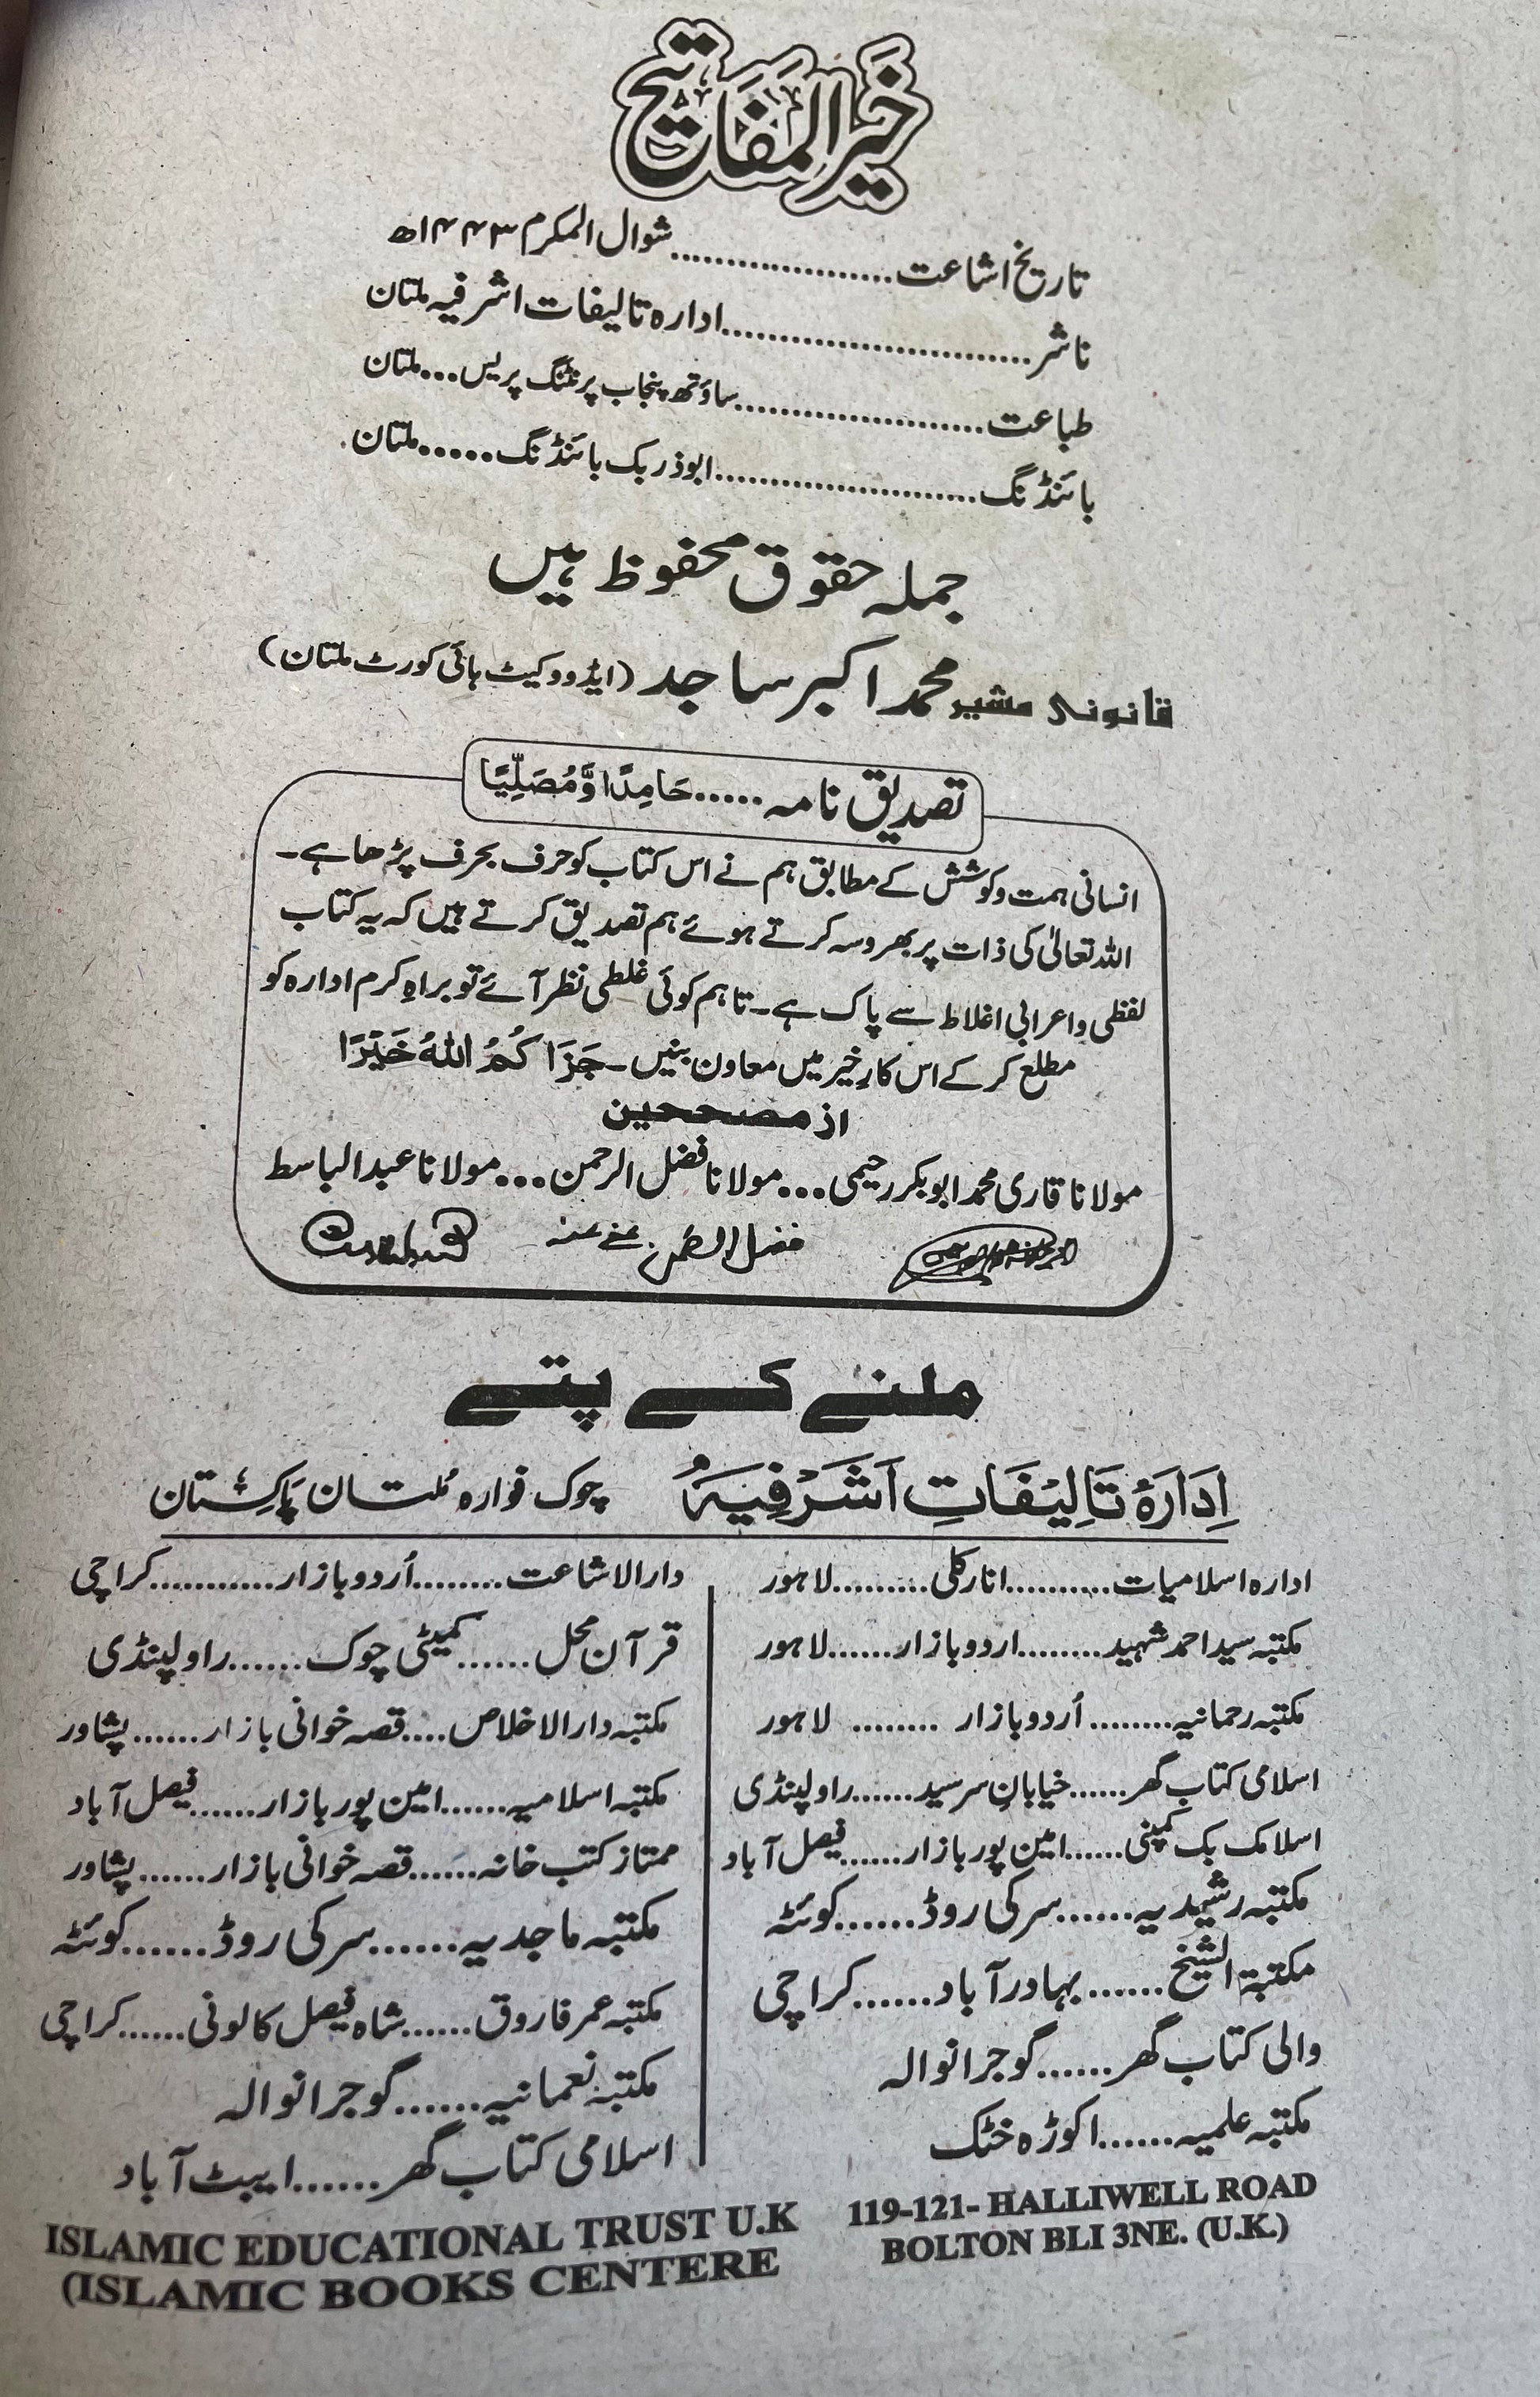 خَیرُ المَفَاتیح
تاریخ اشاعت......................شوال المکرم ۱۴۴۳ھ
ناشر..............................ادارہ تالیفات اشرفیہ ملتان
طباعت.........................ساؤتھ پنجاب پرنٹنگ پریس...ملتان
بائنڈنگ..........................ابوذر بک بائنڈنگ......ملتان
جملہ حقوق محفوظ ہیں
قانونی مشیر محمد اکبر ساجد (ایڈووکیٹ ہائی کورٹ ملتان)
تصدیق نامہ......حَامِدًا وَّمُصَلِّیًا
انسانی ہمت وکوشش کے مطابق ہم نے اس کتاب کو حرف بحرف پڑھا ہے۔
اللہ تعالیٰ کی ذات پر بھروسہ کرتے ہوئے ہم تصدیق کرتے ہیں کہ یہ کتاب
لفظی واعرابی اغلاط سے پاک ہے۔ تاہم کوئی غلطی نظر آئے تو براہِ کرم ادارہ کو
مطلع کر کے اس کارِ خیر میں معاون بنیں۔ جَزَا کُمُ اللہُ خَیْرًا
از مصححین
مولانا قاری محمد ابوبکر رحیمی...مولانا فضل الرحمن...مولانا عبدالباسط
فضل الرحمن عفی عنہ
ملنے کے پتے
اِدَارَۂ تَالِیْفَاتِ اَشَرْفِیَہُ چوک فوارہ مُلتان پَاکِستان
ادارہ اسلامیات..........انارکلی.........لاہور
مکتبہ سید احمد شہید........اردو بازار......لاہور
مکتبہ رحمانیہ........اُردو بازار ........ لاہور
اسلامی کتاب گھر......خیابانِ سرسید......راولپنڈی
اسلامک بک کمپنی......امین پور بازار......فیصل آباد
مکتبہ رشیدیہ......سرکی روڈ......کوئٹہ
مکتبۃ الشیخ......بہادر آباد......کراچی
والی کتاب گھر......گوجرانوالہ
مکتبہ علمیہ......اکوڑہ خٹک
دارالاشاعت........اُردو بازار...........کراچی
قرآن محل......کمیٹی چوک......راولپنڈی
مکتبہ دارالاخلاص....قصہ خوانی بازار......پشاور
مکتبہ اسلامیہ......امین پور بازار......فیصل آباد
ممتاز کتب خانہ......قصہ خوانی بازار......پشاور
مکتبہ ماجدیہ......سرکی روڈ......کوئٹہ
مکتبہ عمر فاروق......شاہ فیصل کالونی......کراچی
مکتبہ نعمانیہ......گوجرانوالہ
اسلامی کتاب گھر......ایبٹ آباد
ISLAMIC EDUCATIONAL TRUST U.K
(ISLAMIC BOOKS CENTERE
119-121- HALLIWELL ROAD
BOLTON BLI 3NE. (U.K.)